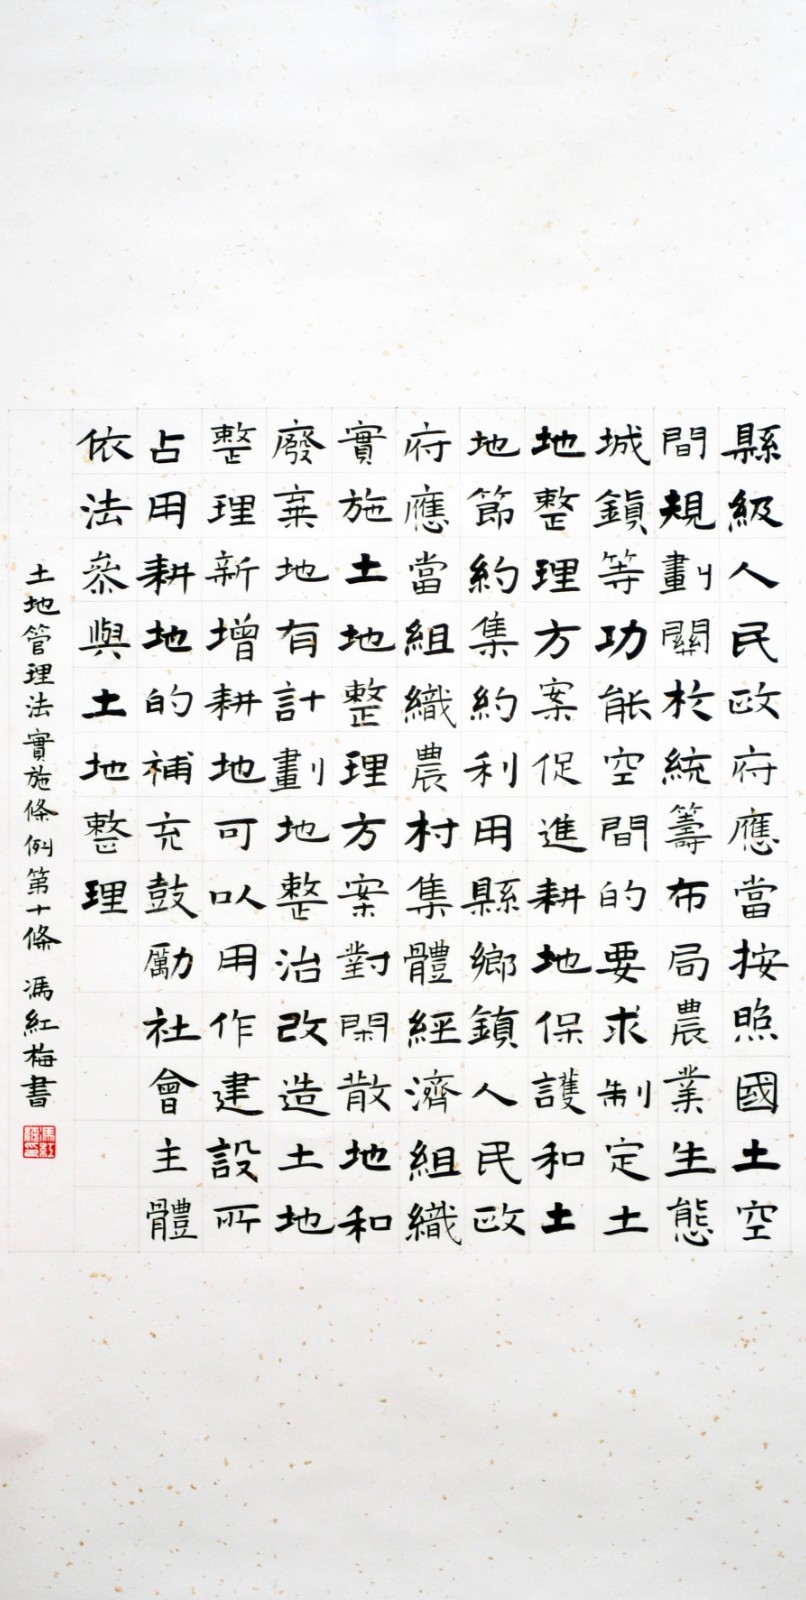 縣級人民政府應當按照國土空
間規劃關於統籌布局農業生態
城鎮等功能空間的要求制定土
地整理方案促進耕地保護和土
地節約集約利用縣鄉鎮人民政
府應當組織農村集體經濟組織
實施土地整理方案對閑散地和
廢棄地有計劃地整治改造土地
整理新增耕地可以用作建設所
占用耕地的補充鼓勵社會主體
依法參與土地整理
土地管理法實施條例第十條 馮紅梅書